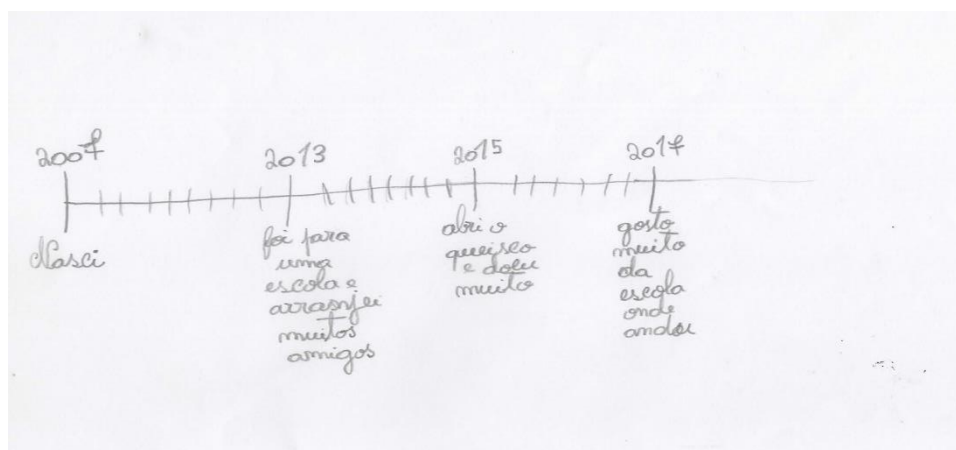 2007
2013
2015
2017
Nasci
foi para
uma
escola e
arranjei
muitos
amigos
abri o
queisco
e doeu
muito
gosto
muito
da
escola
onde
ando